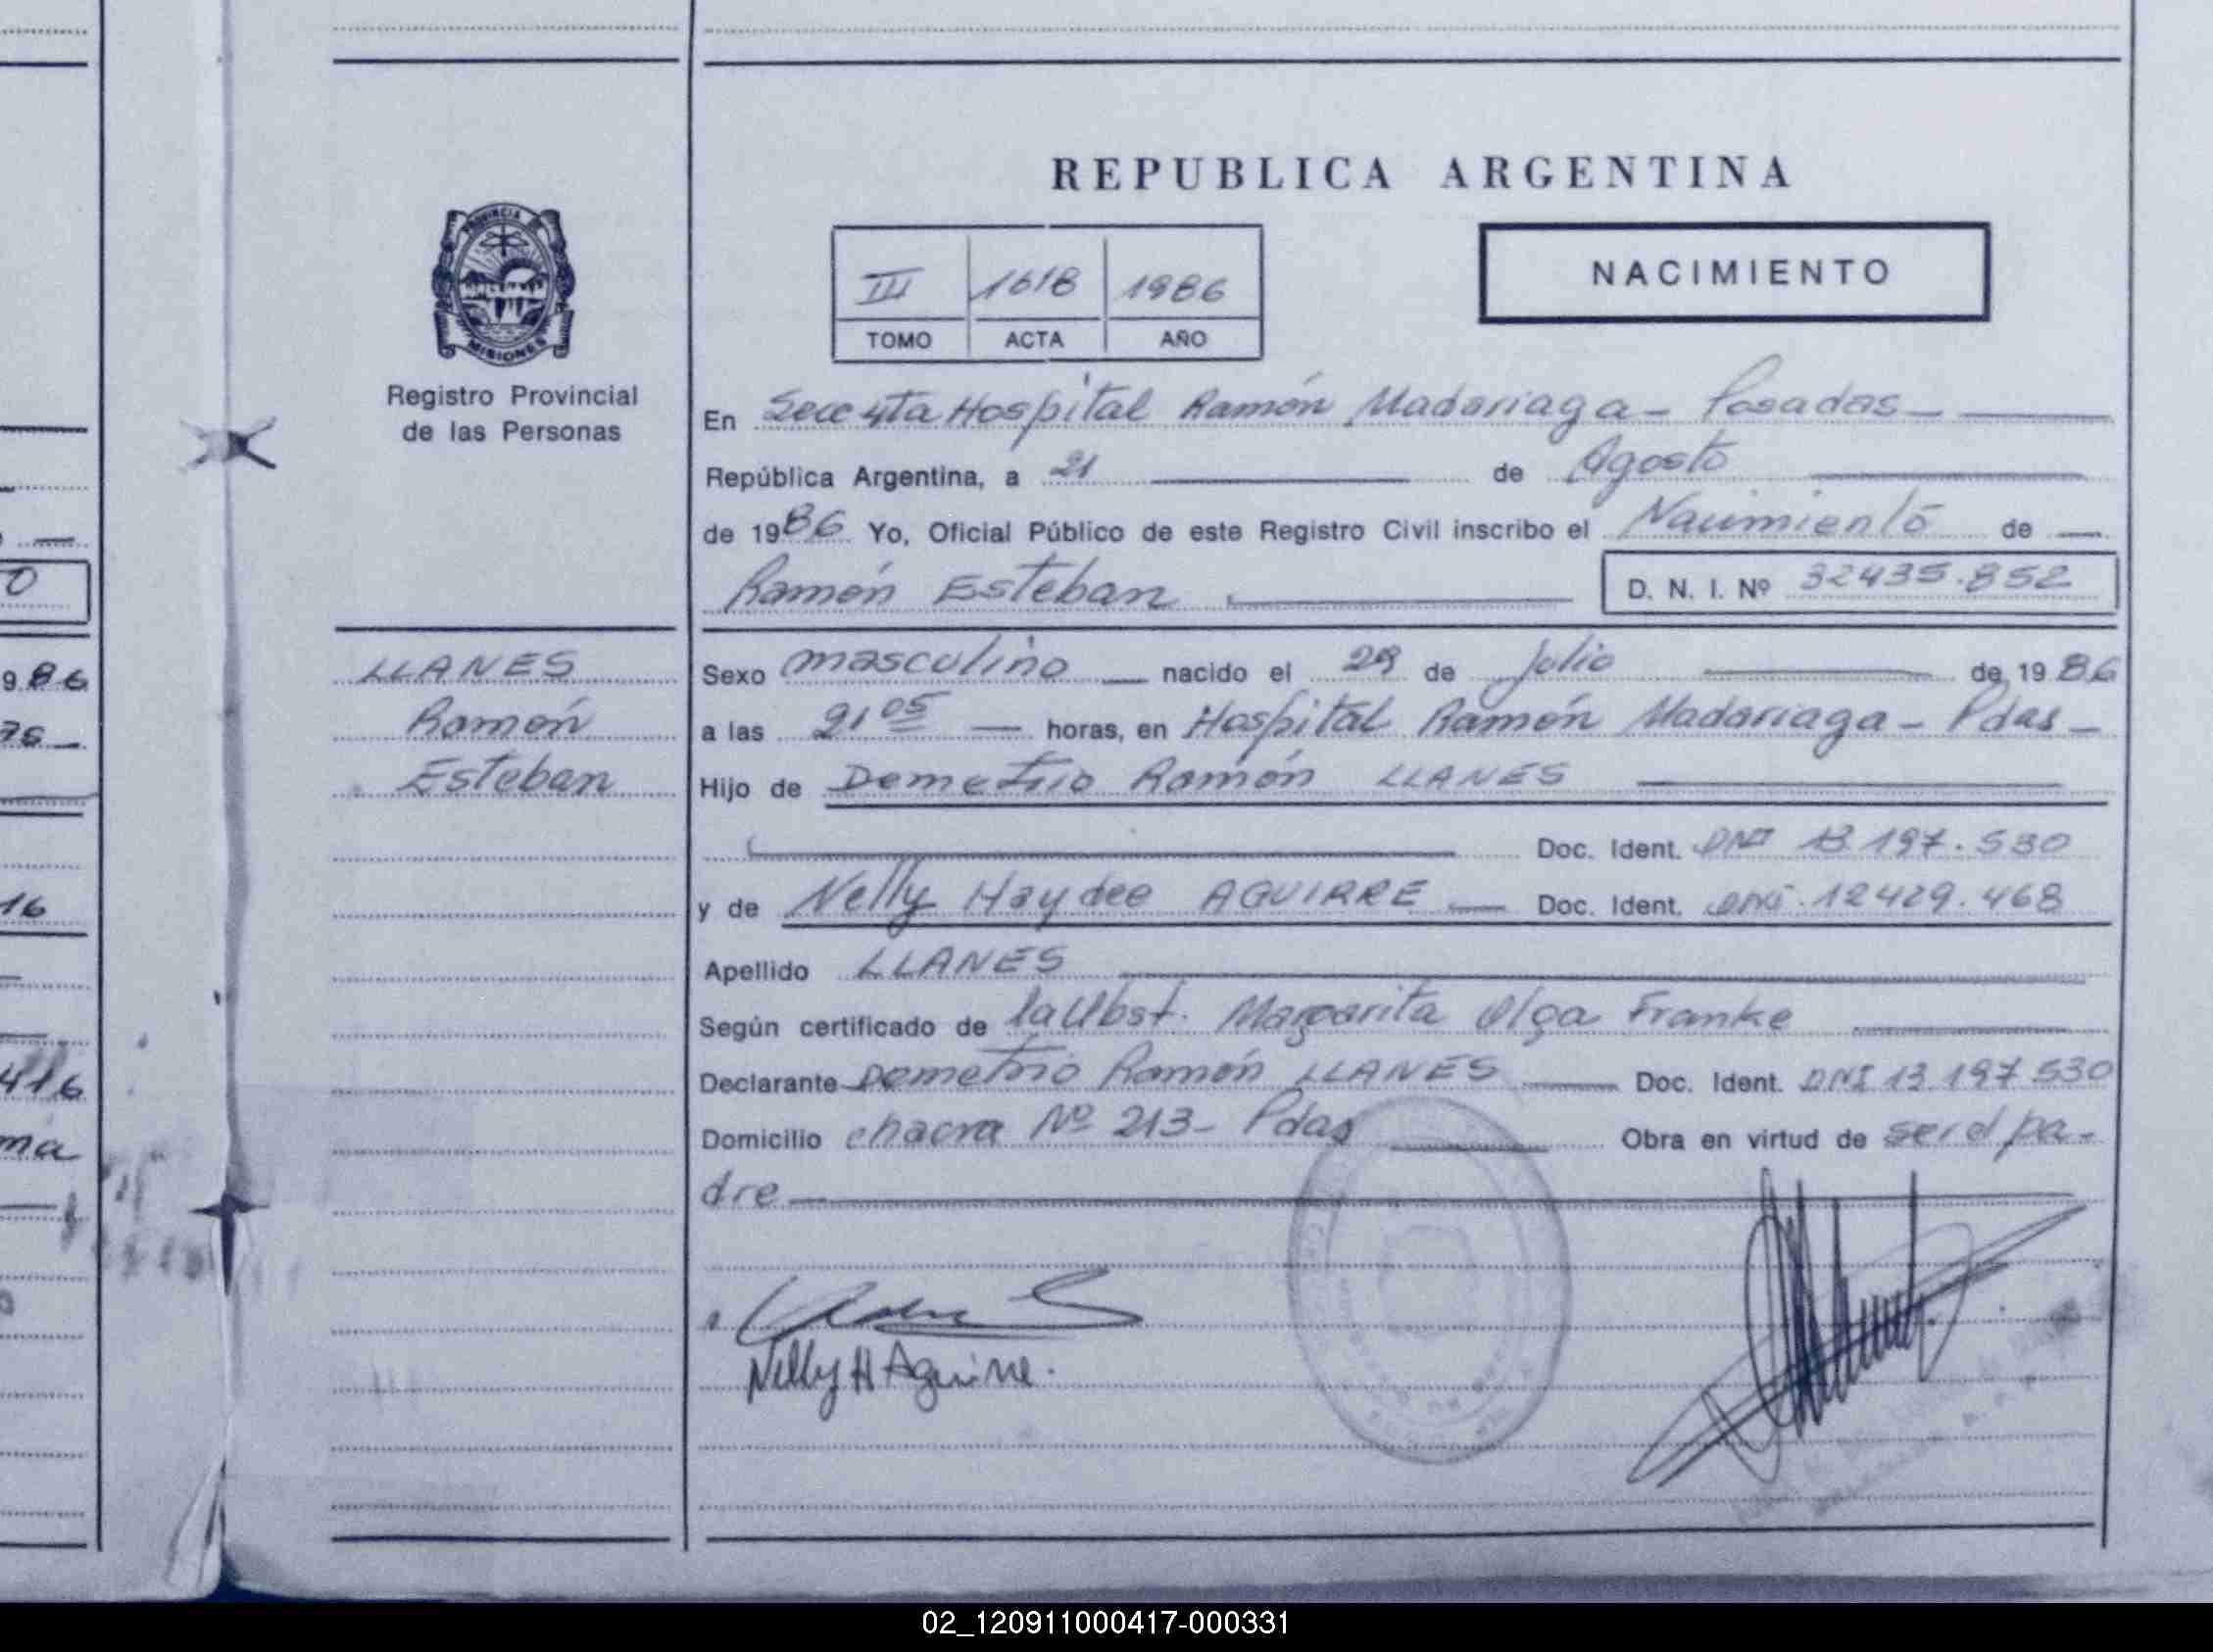 REPUBLICA ARGENTINA
NACIMIENTO
III 1618 1986
TOMO ACTA AÑO
PROVINCIA DE
MISIONES
Registro Provincial
de las Personas
En Secc 4ta Hospital Ramón Madariaga - Posadas -
República Argentina, a 21 de Agosto
de 1986 Yo, Oficial Público de este Registro Civil inscribo el Nacimiento de
Ramón Esteban
D. N. I. Nº 32435.852
LLANES
Ramón
Esteban
Sexo masculino nacido el 29 de Julio de 1986
a las 21 05 horas, en Hospital Ramón Madariaga - Pdas -
Hijo de Demetrio Ramón LLANES
Doc. Ident. DNI 13 197.530
y de Nelly Haydee AGUIRRE Doc. Ident. DNI. 12429.468
Apellido LLANES
Según certificado de la Obst. Margarita Olga Franke
Declarante Demetrio Ramón LLANES Doc. Ident. DNI 13 197 530
Domicilio chacra Nº 213 - Pdas Obra en virtud de ser el pa-
dre
Nelly H Aguirre.
0
986
76
16
416
ma
02_120911000417-000331